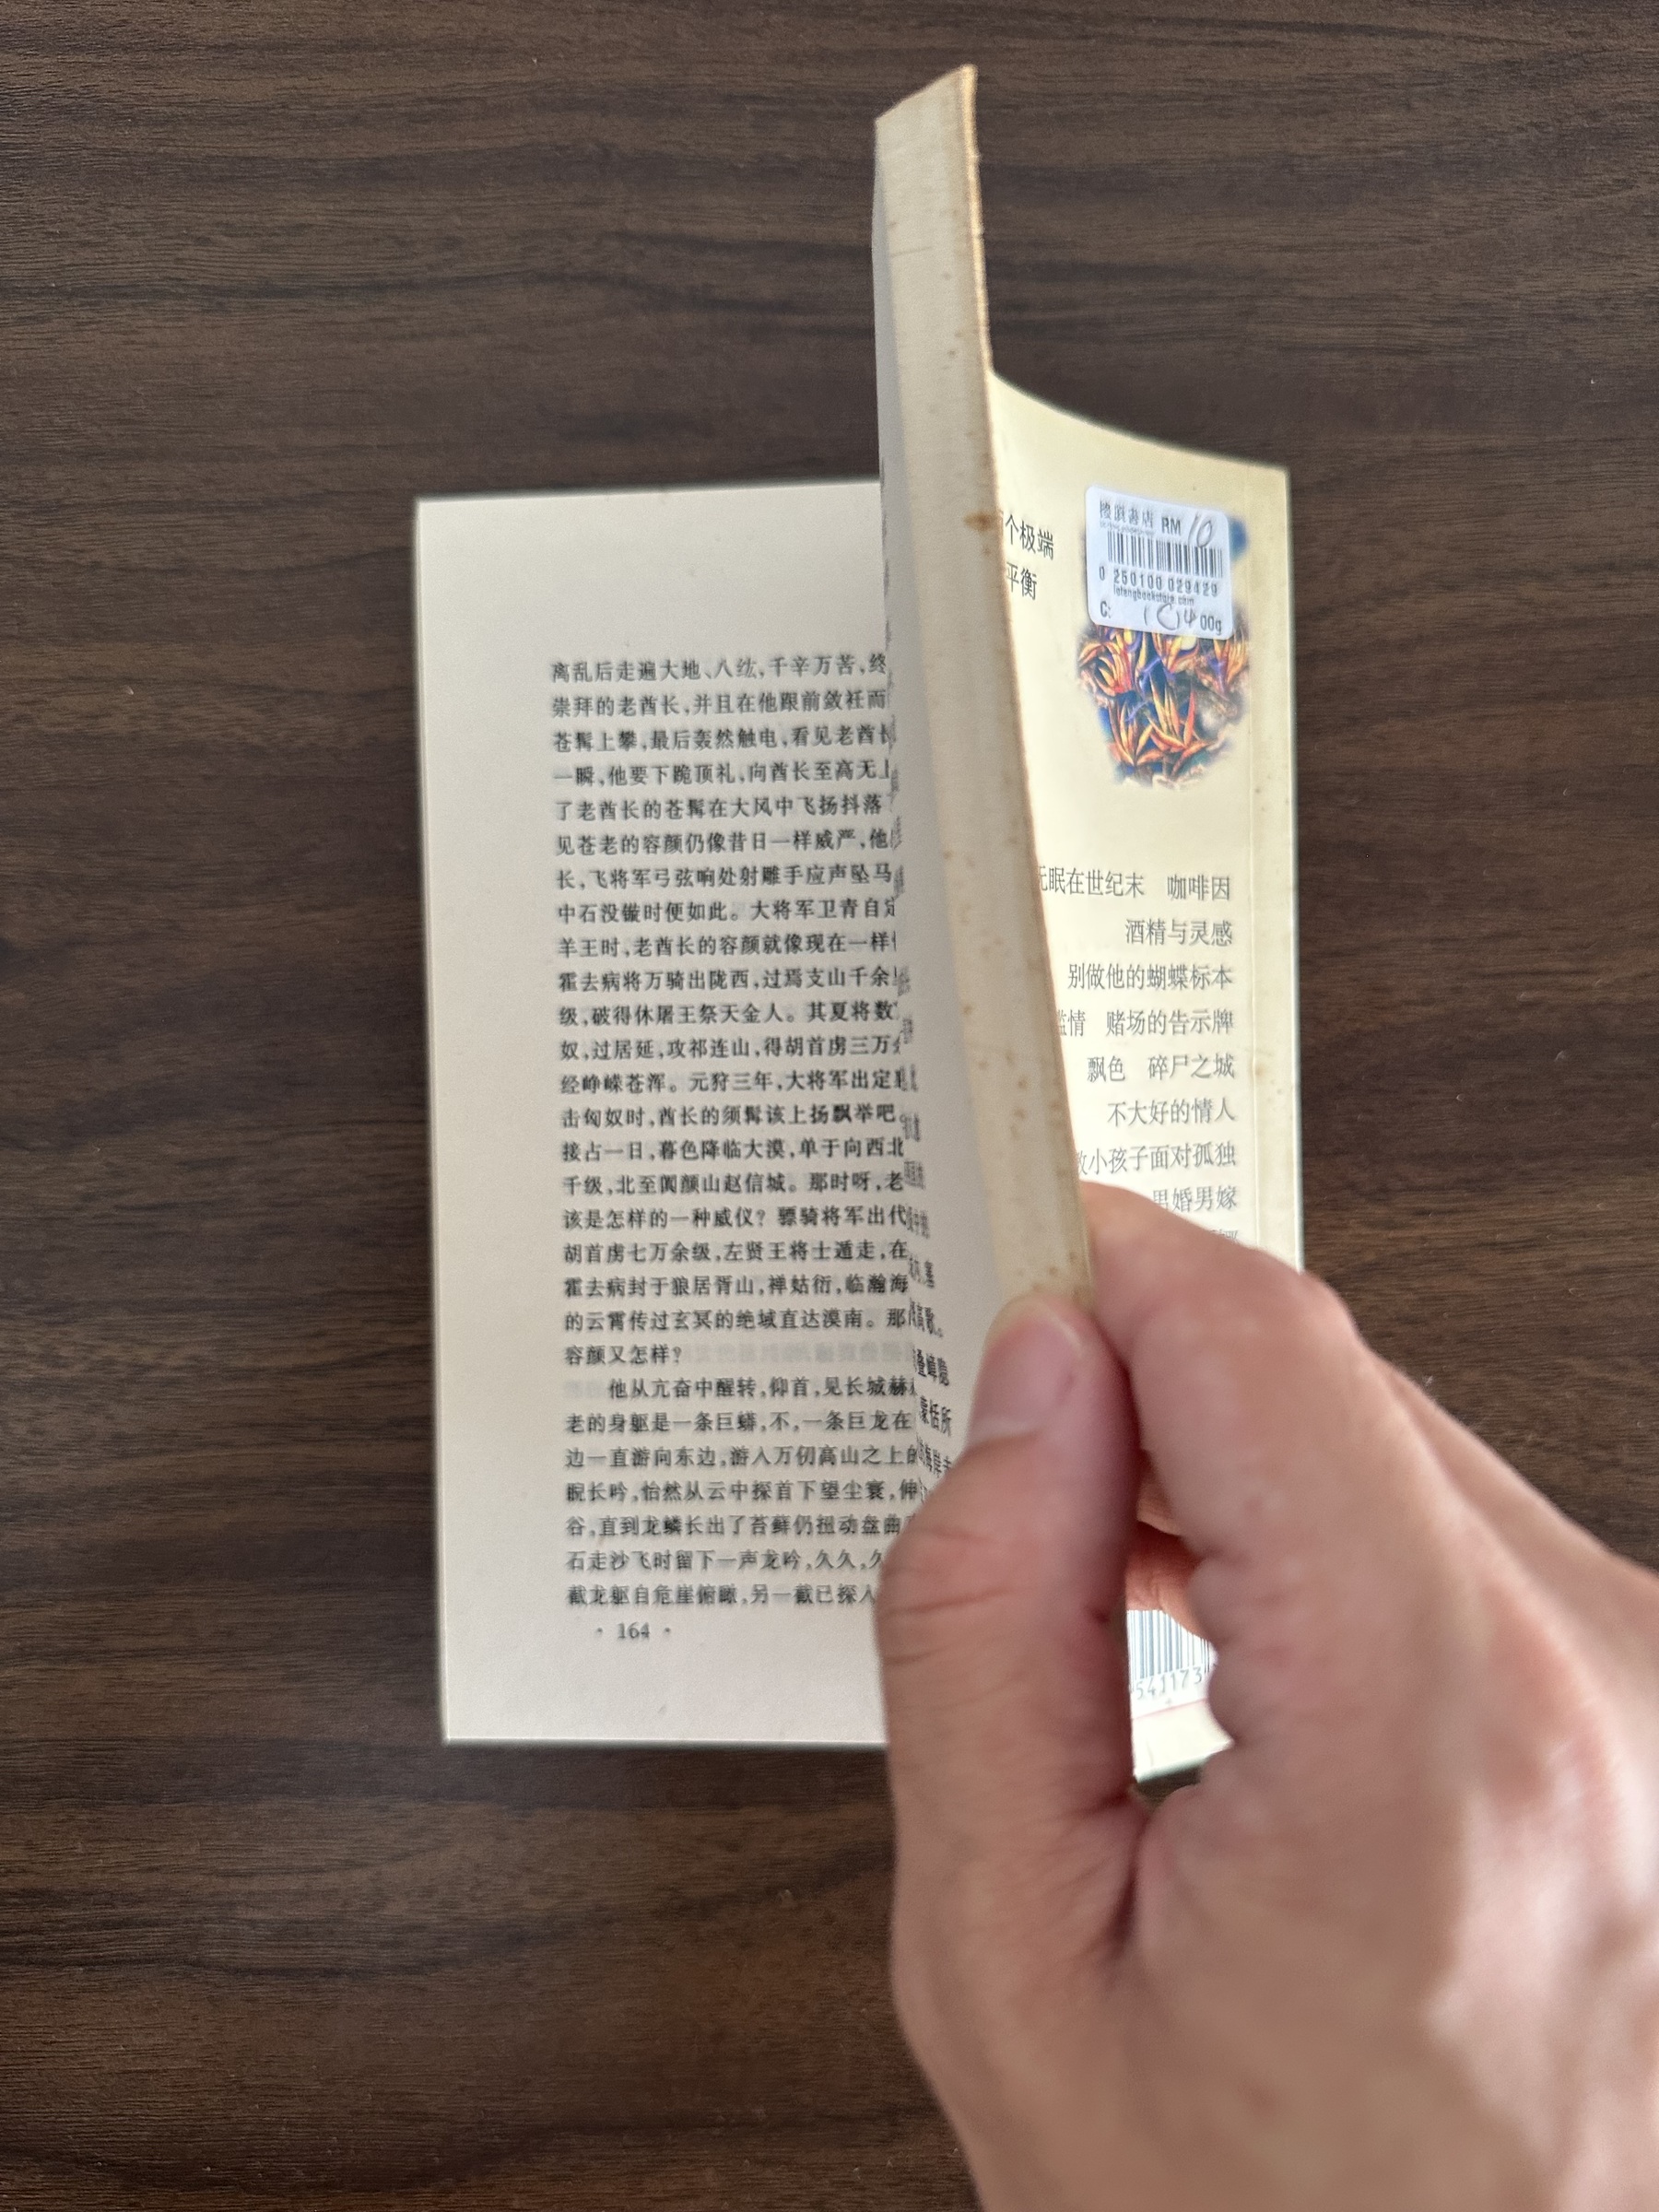 离乱后走遍大地、八纮,千辛万苦,终
崇拜的老酋长,并且在他跟前敛衽而
苍髯上攀,最后轰然触电,看见老酋长
一瞬,他要下跪顶礼,向酋长至高无上
了老酋长的苍髯在大风中飞扬抖落
见苍老的容颜仍像昔日一样威严,他
长,飞将军弓弦响处射雕手应声坠马
中石没镞时便如此。大将军卫青自定
羊王时,老酋长的容颜就像现在一样
霍去病将万骑出陇西,过焉支山千余
级,破得休屠王祭天金人。其夏将数
奴,过居延,攻祁连山,得胡首虏三万
经峥嵘苍浑。元狩三年,大将军出定
击匈奴时,酋长的须髯该上扬飘举吧
接占一日,暮色降临大漠,单于向西北
千级,北至阗颜山赵信城。那时呀,老
该是怎样的一种威仪?骠骑将军出代
胡首虏七万余级,左贤王将士遁走,在
霍去病封于狼居胥山,禅姑衍,临瀚海
的云霄传过玄冥的绝域直达漠南。那
容颜又怎样?
他从亢奋中醒转,仰首,见长城赫
老的身躯是一条巨蟒,不,一条巨龙在
边一直游向东边,游入万仞高山之上的
睨长吟,怡然从云中探首下望尘寰,伸
谷,直到龙鳞长出了苔藓仍扭动盘曲
石走沙飞时留下一声龙吟,久久,久
截龙躯自危崖俯瞰,另一截已探入
· 164 ·
高歌。
个极端
平衡
書店 RM 10
0 250100 029429
C: 00g
无眠在世纪末 咖啡因
酒精与灵感
别做他的蝴蝶标本
滥情 赌场的告示牌
飘色 碎尸之城
不大好的情人
教小孩子面对孤独
男婚男嫁
541173